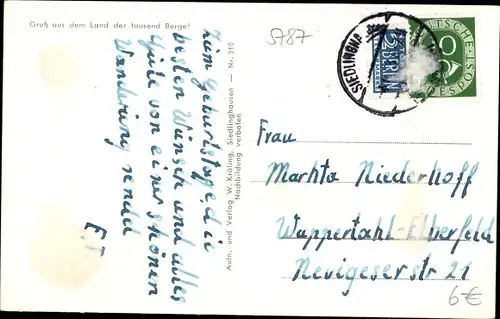 Gruß aus dem Land der tausend Berge!
5787
Zum Geburtstage die
besten Wünsche und alles
Gute von einer schönen
Wandrung sendet
E.T
Aufn. und Verlag W. Kräling, Siedlinghausen — Nr. 510
Nachbildung verboten
SIEDLINGHA
2 BERLIN
DEUTSCHE
POST
Frau
Martha Niederhoff
Wuppertahl-Elberfeld
Nevigeserstr 21
6€